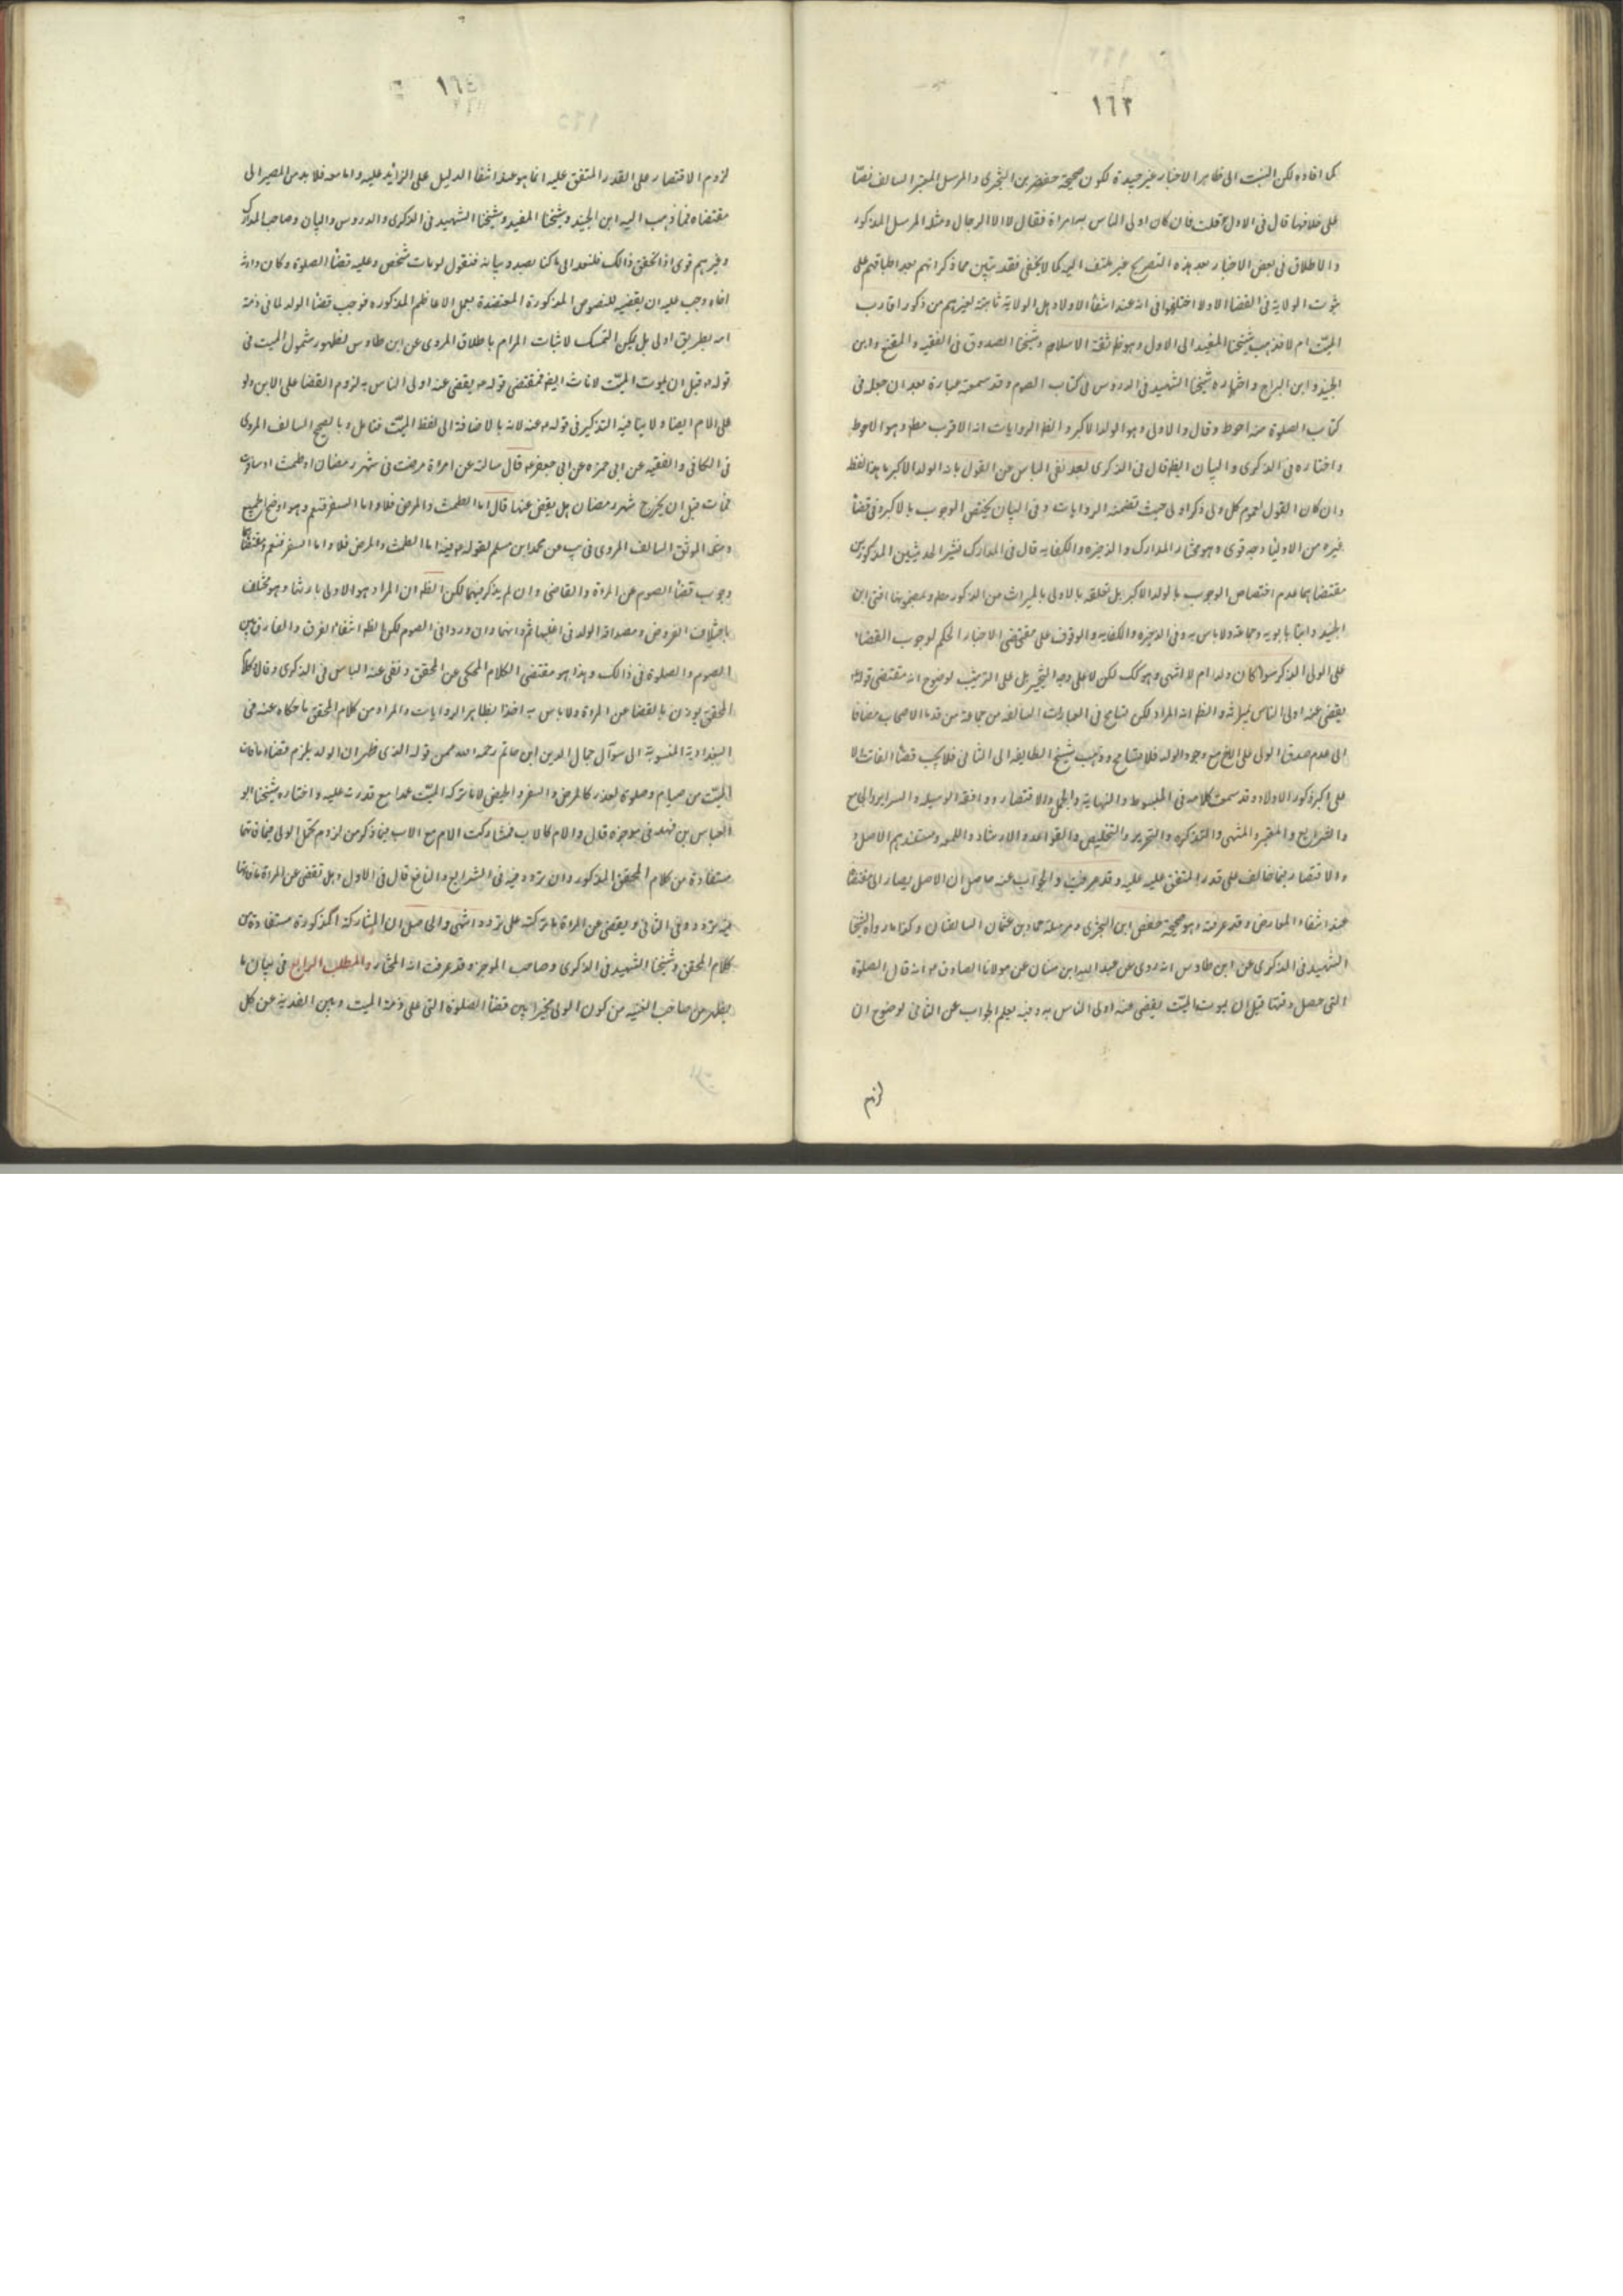 ١٦٣
كما افاده لكن البيت الى ظاهر الاخبار غير جيدة لكون صحيحة حفص بن البختري والمرسل المعتبر السالف نصّا
على خلافها قال في الاول قلت فان كان اولى الناس به امراة فقال لا الا الرجال ومثله المرسل المذكور
والاطلاق في بعض الاخبار بعد هذه التصريح غير ملتفت اليه كما لا يخفى فقد تبين مما ذكر انهم بعد اطباقهم على
ثبوت الولاية في القضا الاولاد اختلفوا في انه عند انتفا الاولاد هل الولاية ثابتة لغيرهم من ذكور اقارب
الميّت ام لا فذهب شيخنا المفيد الى الاول وهو ظ ثقة الاسلام وشيخنا الصدوق في الفقيه والمقنع وابن
الجنيد وابن البراج واختاره شيخنا الشهيد في الدروس في كتاب الصوم وقد سمعت عبارة بعد ان جعله في
كتاب الصلوة منه احوط وقال والاولى وهو الولد الاكبر والظ الروايات انه الاقرب مط وهو الاحوط
واختاره في الذكرى والبيان ايض قال في الذكرى بعد نفى الباس عن القول بانه الولد الاكبر ما هذا لفظه
وان كان القول لعموم كل ولى ذكر اولى حيث تضمنه الروايات وفي البيان يختص الوجوب بالاكبر وفي قضا
غيره من الاوليا وجه قوى وهو مختار المدارك والذخيره والكفايه قال في المدارك الحديثين المذكورين
مقتضاهما عدم اختصاص الوجوب بالولد الاكبر بل تعلقه بالاولى بالميراث من الذكور مط وبمضمونها افتى ابن
الجنيد وابنا بابويه وجماعة ولا باس به وفي الذخيره والكفايه والوقوف على مقتضى الاخبار الحكم لوجوب القضاء
على الولى الذكر سوا كان ولد ام لا انتهى وهو كك لكن لا على وجه التخيير بل على الترتيب لوضوح انه مقتضى قوله
يقضى عنه اولى الناس بميراثه والظ انه المراد لكن تسامح في العبارات السالفه من جماعة من قدما الاصحاب مضافا
الى عدم صدق الولى على الاخ مع وجود الولد فلا تسامح وذهب شيخ الطايفه الى الثانى فلا يجب قضا الفائت الا
على اكبر ذكور الاولاد وقد سمعت كلامه في المبسوط والنهاية والجمل والاقتصار ووافقه الوسيله والسراير والجامع
والشرايع والمعتبر والمنتهى والتذكره والتحرير والتلخيص والقواعد والارشاد واللمعه ومستندهم الاصل و
والاقتصار فيما خالف على قدر المتفق عليه عليه وقد عرفت والجواب عنه حاصل ان الاصل يصار الى مقتضا
عند انتفاء المعارض وقد عرفته وهو صحيحة حفص ابن البختري ومرسلة حماد بن عثمان السالفتان وكذا ما رواه شيخنا
الشهيد في الذكرى عن ابن طاوس انه روى عن عبد الله ابن سنان عن مولانا الصادق ع انه قال الصلوة
التى حصل وقتها قبل ان يموت الميّت يقضى عنه اولى الناس به ومنه يعلم الجواب عن الثانى لوضوح ان
لزوم
١٦٤
لزوم الاقتصار على القدر المتفق عليه انما هو عند انتفا الدليل على الزائد عليه واما معه فلا بد من المصير الى
مقتضاه فما ذهب اليه ابن الجنيد وشيخنا المفيد وشيخنا الشهيد في الذكرى والدروس والبيان وصاحب المدارك
وغيرهم قوى اذا تحقق ذالك فلنعد الى ما كنا بصدد بيانه فنقول لو مات شخص وعليه قضا الصلوة وكان وارثه
اخاه وجب عليه ان يقضيه للنصوص المذكورة المعتضدة بعمل الاعاظم المذكوره فوجب قضا الولد لما في ذمة
امه بطريق اولى بل يمكن التمسك لاثبات المرام باطلاق المروى عن ابن طاوس لظهور شمول الميت في
قوله ع قبل ان يموت الميّت لاناث ايض فمقتضى قوله ع يقضى عنه اولى الناس به لزوم القضا على الابن ولو
على الام ايضا ولا ينافيه التذكير في قوله ع عنه لانه بالاضافة الى لفظ الميّت فتامل وبالصحيح السالف المروى
في الكافى والفقيه عن ابى حمزه عن ابى جعفر ع قال سالته عن امراة مرضت في شهر رمضان او طمثت او سافرت
فماتت قبل ان يخرج شهر رمضان هل يقضى عنها قال اما الطمث والمرض فلا واما السفر فنعم وهو اوضح
ومثله الموثق السالف المروى في يب عن محمد ابن مسلم لقوله ع فيه اما الطمث والمرض فلا واما السفر فنعم ومقتضاهما
وجوب قضا الصوم عن المراة والقاضى وان لم يذكر فيهما لكن الظ ان المراد هو الاولى بارثها وهو مختلف
باختلاف الفروض ومصداقه الولد في اغلبها ثم وانهما وان وردا في الصوم لكن الظ انتفاء الفرق والفارق بين
الصوم والصلوة في ذالك وهذا هو مقتضى الكلام المحكى عن المحقق ونفى عنه الباس في الذكرى وقال كلام
المحقق يوذن بالقضا عن المراة ولا باس به اخذا بظاهر الروايات والمراد من كلام المحقق ما حكاه عنه في
البغدادية المنسوبة الى سوآل جمال الدين ابن حاتم رحمه الله من قوله الذى ظهر ان الولد يلزم قضاء ما فات
الميّت من صيام وصلوة لعذر كالمرض والسفر والحيض لا ما تركه الميّت عمدا مع قدرته عليه واختاره شيخنا ابو
العباس بن فهد في موجزه قال والام كالاب فشاركت الام مع الاب فيما ذكر من لزوم تحمل الولى فيما فاتهما
مستفادة من كلام المحقق المذكور وان تردد فيه في الشرايع والنافع قال في الاول وهل تقضى عن المراة ما فاتها
فيه تردد وفي الثانى ويقضى عن المراة ما تركته على تردد انتهى والحاصل ان المشاركة المذكورة مستفادة من
كلام المحقق وشيخنا الشهيد في الذكرى وصاحب الموجز وقد عرفت انه المختار والمطلب الرابع في بيان ما
يظهر من صاحب الغنيه من كون الولى مخيرا بين قضا الصلوة التى على ذمة الميت وبين الفدية عن كل